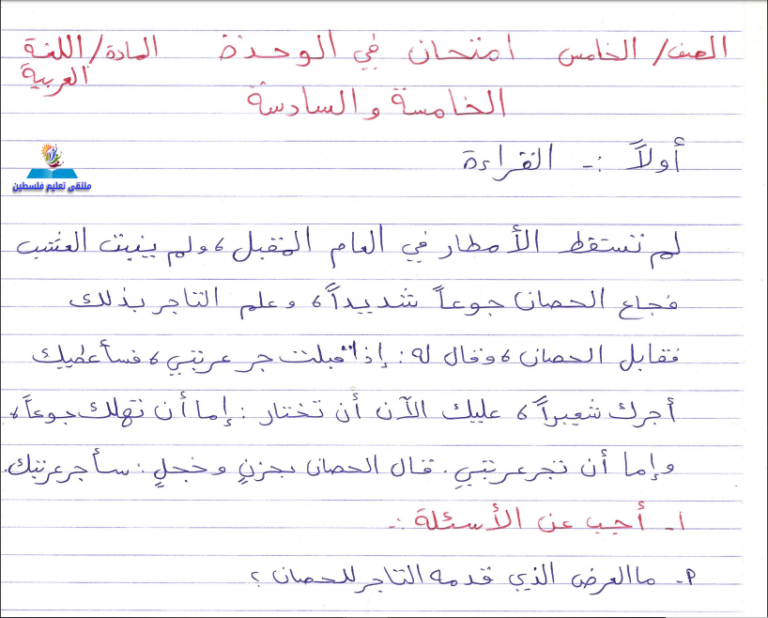 الصف/ الخامس امتحان في الوحدة المادة/ اللغة العربية
الخامسة والسادسة
ملتقى تعليم فلسطين
أولاً :- القراءة
لم تسقط الأمطار في العام المقبل، ولم ينبت العشب
فجاع الحصان جوعاً شديداً، وعلم التاجر بذلك
فقابل الحصان، وقال له: إذا قبلت جر عربتي، فسأعطيك
أجرك شعيراً، عليك الآن أن تختار: إما أن تهلك جوعاً،
وإما أن تجر عربتي. قال الحصان بحزنٍ وخجلٍ: سأجر عربتك.
١- أجب عن الأسئلة :-
٩- ما العرض الذي قدمه التاجر للحصان؟